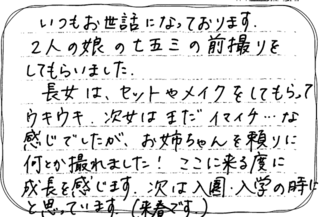 いつもお世話になっております.
2人の娘の七五三の前撮りを
してもらいました.
長女は、セットやメイクをしてもらって
ウキウキ. 次女はまだイマイチ…な
感じでしたが、お姉ちゃんを頼りに
何とか撮れました! ここに来る度に
成長を感じます. 次は入園・入学の時に
と思っています. (来春です.)